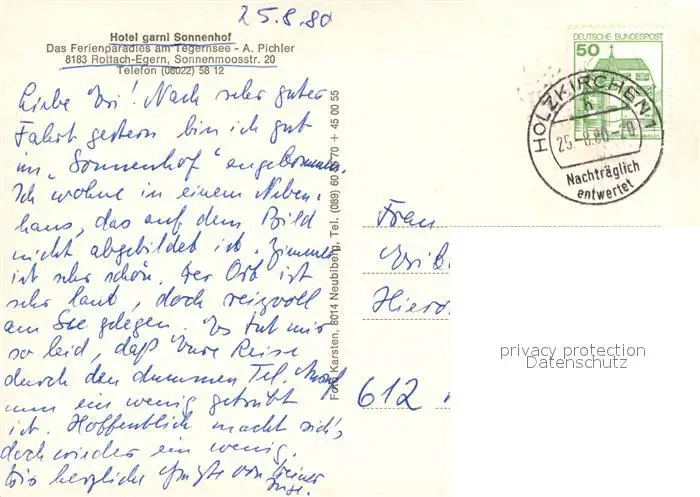 25.8.80
Hotel garni Sonnenhof
Das Ferienparadies am Tegernsee - A. Pichler
8183 Rottach-Egern, Sonnenmoosstr. 20
Telefon (08022) 58 12
Liebe Evi! Nach sehr guter
Fahrt gestern bin ich gut
im „Sonnenhof" angekommen.
Ich wohne in einem Neben-
haus, das auf dem Bild
nicht abgebildet ist. Zimmer
ist sehr schön. Der Ort ist
sehr laut, doch reizvoll
am See gelegen. Es tut mir
so leid, daß Eure Reise
durch den dummen Tel. Anruf
nun ein wenig getrübt
ist. Hoffentlich macht sich's
doch wieder ein wenig.
Dir herzliche Grüße von Deiner
Foto Karsten, 8014 Neubiberg, Tel. (089) 60 55 70 + 45 00 55
DEUTSCHE BUNDESPOST
50
HOLZKIRCHEN 1
h
25.-8.80-20
Nachträglich
entwertet
Frau
612
privacy protection
Datenschutz